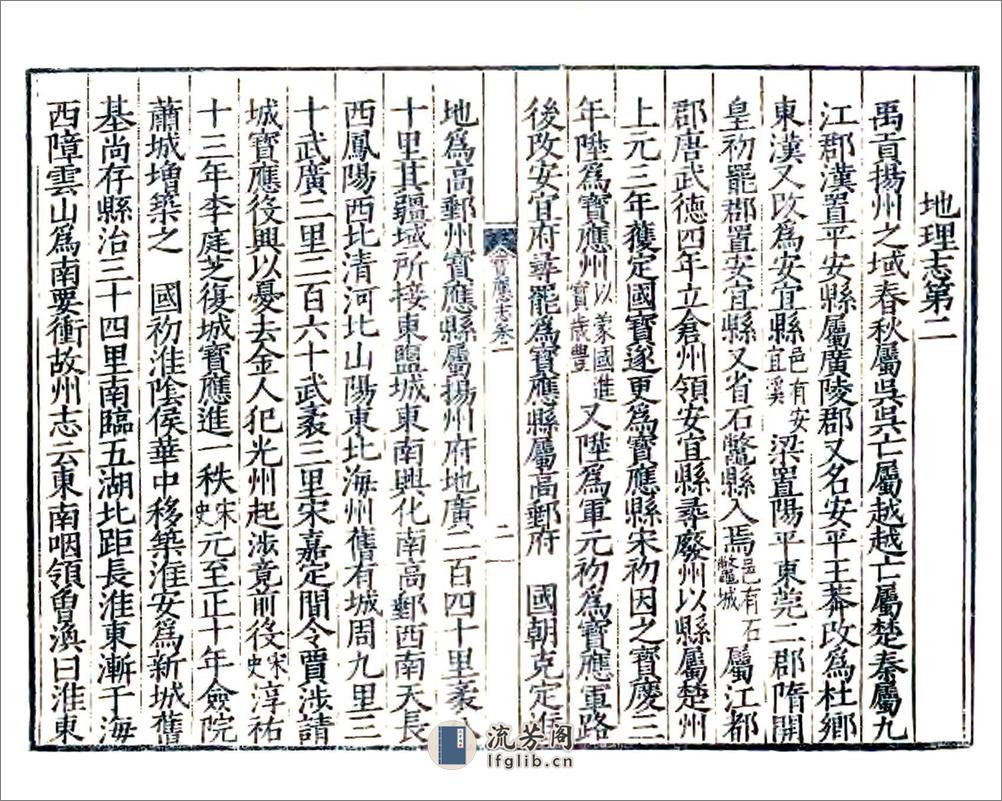 地理志第二
禹貢揚州之域春秋屬吳吳亡屬越越亡屬楚秦屬九
江郡漢置平安縣屬廣陵郡又名安平王莽改爲杜鄉
東漢又改爲安宜縣邑有安宜溪梁置陽平東莞二郡隋開
皇初罷郡置安宜縣又省石鱉縣入焉邑有石鱉城屬江都
郡唐武德四年立倉州領安宜縣尋廢州以縣屬楚州
上元三年獲定國寶遂更爲寶應縣宋初因之寶慶三
年陞爲寶應州以蒙國進寶歲豐又陞爲軍元初爲寶應軍路
後改安宜府尋罷爲寶應縣屬高郵府 國朝克定淮
寶應志卷一
二
地爲高郵州寶應縣屬揚州府地廣二百四十里袤八
十里其疆域所接東鹽城東南興化南高郵西南天長
西鳳陽西北清河北山陽東北海州舊有城周九里三
十武廣二里二百六十武袤三里宋嘉定間令賈涉請
城寶應役興以憂去金人犯光州起涉竟前役宋史淳祐
十三年李庭芝復城寶應進一秩宋史元至正十年僉院
蕭城增築之 國初淮陰侯華中移築淮安爲新城舊
基尚存縣治三十四里南臨五湖北距長淮東漸于海
西障雲山爲南要衝故州志云東南咽領魯渙曰淮東
流芳阁
lfglib.cn